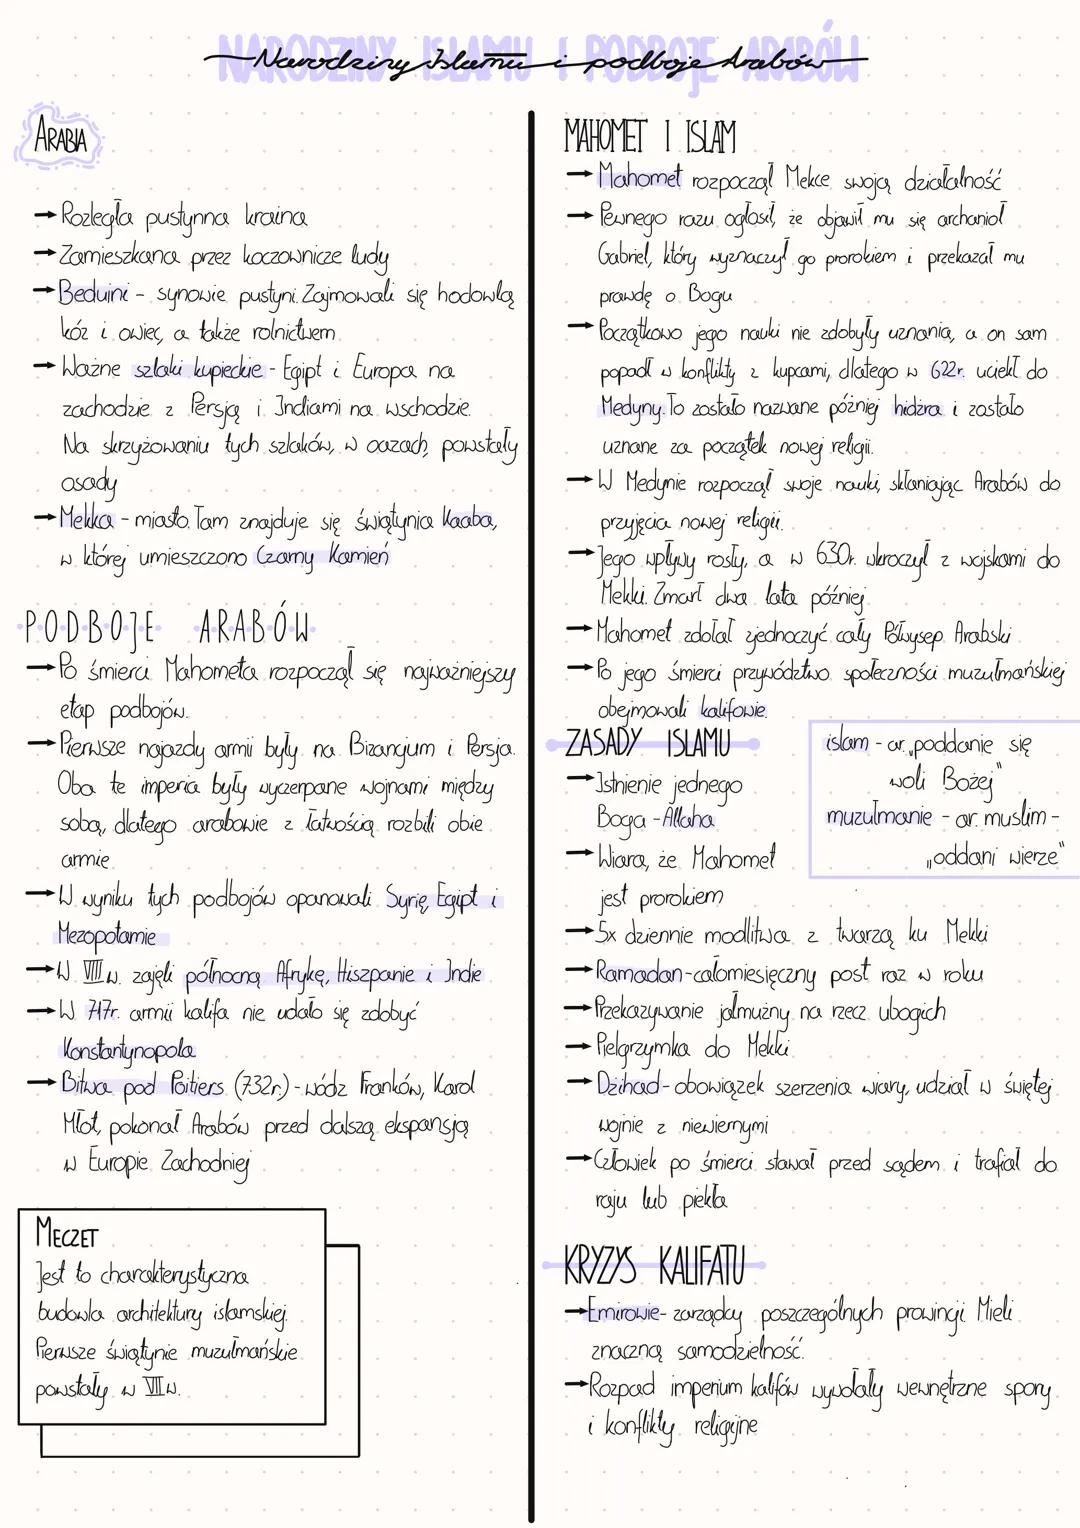 NARODZINY ISLAMU I PODBOJE ARABÓW
Narodziny Islamu i podboje Arabów
ARABIA
→ Rozległa pustynna kraina
→ Zamieszkana przez koczownicze ludy
→ Beduini - synowie pustyni. Zajmowali się hodowlą
kóz i owiec, a także rolnictwem
→ Ważne szlaki kupieckie - Egipt i Europa na
zachodzie z Persją i Indiami na wschodzie.
Na skrzyżowaniu tych szlaków, w oazach, powstały
osady
→ Mekka - miasto. Tam znajduje się świątynia Kaaba,
w której umieszczono Czarny Kamień
PODBOJE ARABÓW
→ Po śmierci Mahometa rozpoczął się najważniejszy
etap podbojów.
→ Pierwsze najazdy armii były na Bizancjum i Persja.
Oba te imperia były wyczerpane wojnami między
sobą, dlatego arabowie z łatwością rozbili obie
armie
→ W wyniku tych podbojów opanowali Syrię, Egipt i
Mezopotamie
→ W VIII w. zajęli północną Afrykę, Hiszpanie i Indie
→ W 717r. armii kalifa nie udało się zdobyć
Konstantynopola
→ Bitwa pod Poitiers (732r.) - wódz Franków, Karol
Młot, pokonał Arabów przed dalszą ekspansją
w Europie Zachodniej
MECZET
Jest to charakterystyczna
budowla architektury islamskiej.
Pierwsze świątynie muzułmańskie
powstały w VII w.
MAHOMET I ISLAM
→ Mahomet rozpoczął Mekce swoją działalność
→ Pewnego razu ogłosił, że objawił mu się archanioł
Gabriel, który wyznaczył go prorokiem i przekazał mu
prawdę o Bogu
→ Początkowo jego nauki nie zdobyły uznania, a on sam
popadł w konflikty z kupcami, dlatego w 622r. uciekł do
Medyny. To zostało nazwane później hidżra i zostało
uznane za początek nowej religii.
→ W Medynie rozpoczął swoje nauki, skłaniając Arabów do
przyjęcia nowej religii.
→ Jego wpływy rosły, a w 630r. wkroczył z wojskami do
Mekki. Zmarł dwa lata później
→ Mahomet zdołał zjednoczyć cały Półwysep Arabski
→ Po jego śmierci przywództwo społeczności muzułmańskiej
obejmowali kalifowie.
ZASADY ISLAMU
→ Istnienie jednego
Boga - Allaha
→ Wiara, że Mahomet
jest prorokiem
→ 5x dziennie modlitwa z twarzą ku Mekki
→ Ramadan - całomiesięczny post raz w roku
→ Przekazywanie jałmużny na rzecz ubogich
→ Pielgrzymka do Mekki
→ Dżihad - obowiązek szerzenia wiary, udział w świętej
wojnie z niewiernymi
→ Człowiek po śmierci stawał przed sądem i trafiał do
raju lub piekła
islam - ar. „poddanie się
woli Bożej"
muzułmanie - ar. muslim -
„oddani wierze"
KRYZYS KALIFATU
→ Emirowie - zarządcy poszczególnych prowincji Mieli
znaczną samodzielność.
→ Rozpad imperium kalifów wywołały wewnętrzne spory
i konflikty religijne